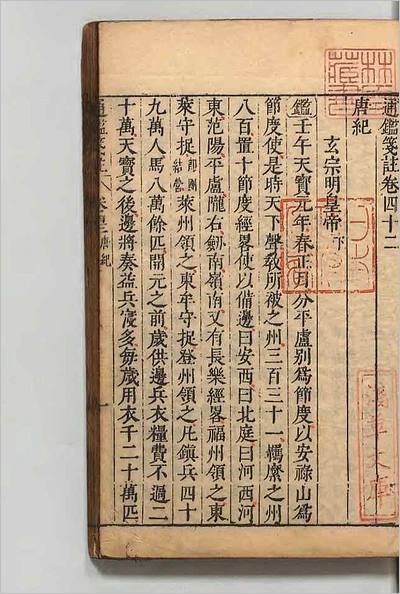 通鑑箋註卷四十二
唐紀
玄宗明皇帝下
鑑壬午天寶元年春正月分平盧別爲節度以安祿山爲
節度使是時天下聲敎所被之州三百三十一羈縻之州
八百置十節度經畧使以備邊曰安西曰北庭曰河西河
東范陽平盧隴右劒南嶺南又有長樂經畧福州領之東
萊守捉即團結營萊州領之東牟守捉登州領之凡鎮兵四十
九萬人馬八萬餘匹開元之前歲供邊兵衣糧費不過二
十萬天寶之後邊將奏益兵寖多每歲用衣千二十萬匹
通鑑箋註 卷 唐紀
文庫